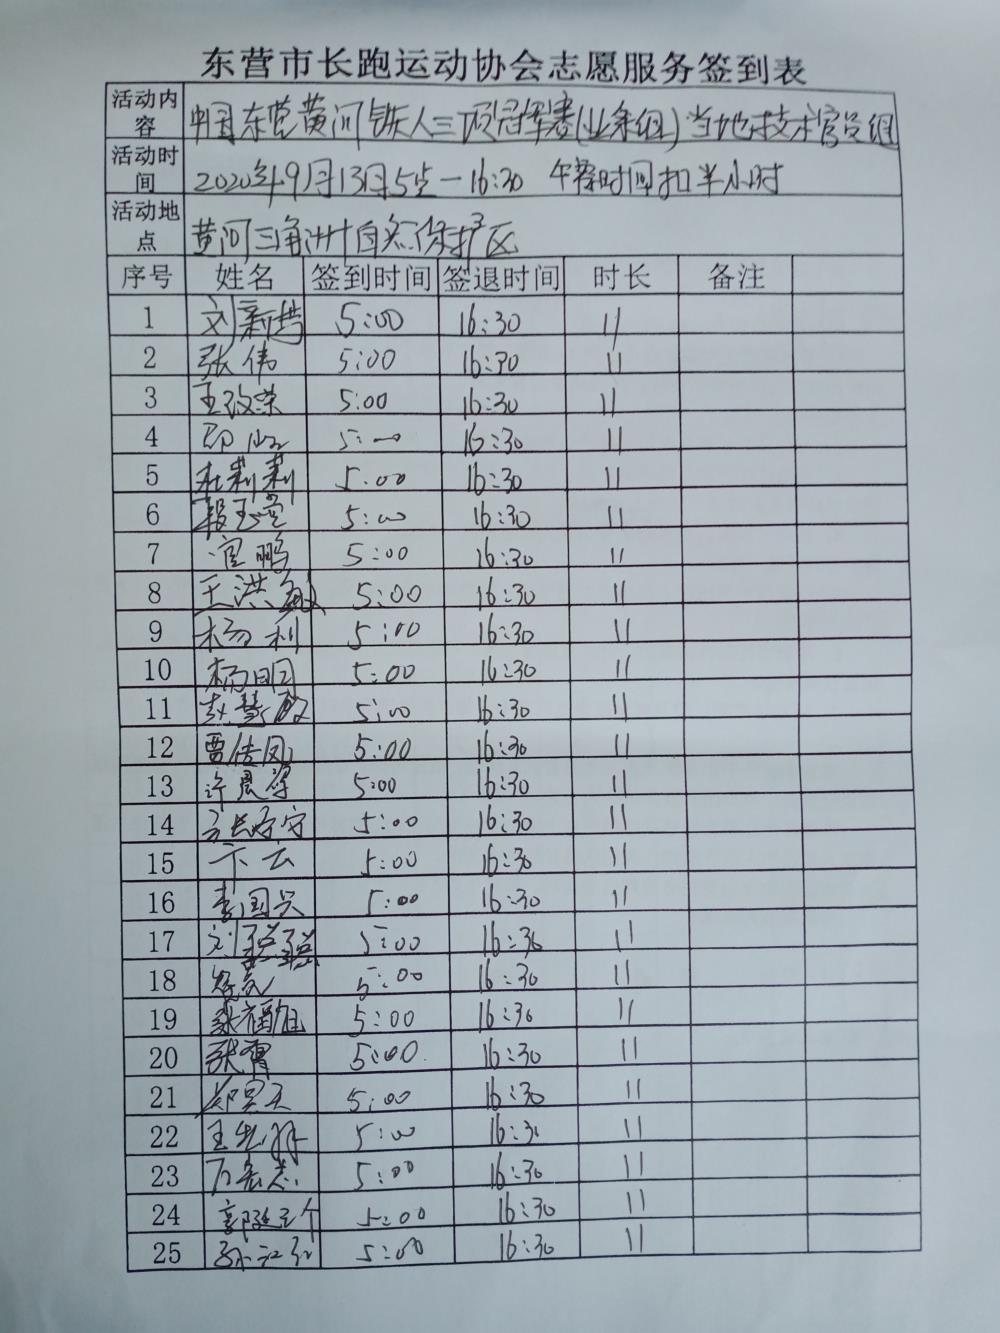 东营市长跑运动协会志愿服务签到表
活动内容 中国东营黄河铁人三项冠军赛(业余组)当地技术官员组
活动时间 2020年9月13日5点—16:30 午餐时间扣半小时
活动地点 黄河三角洲自然保护区
序号 姓名 签到时间 签退时间 时长 备注
1 刘新 5:00 16:30 11
2 张伟 5:00 16:30 11
3 王改荣 5:00 16:30 11
4 5:00 16:30 11
5 杜莉莉 5:00 16:30 11
6 段玉堂 5:00 16:30 11
7 官鹏 5:00 16:30 11
8 王洪敏 5:00 16:30 11
9 杨利 5:00 16:30 11
10 杨明 5:00 16:30 11
11 赵慧敏 5:00 16:30 11
12 曹佳凤 5:00 16:30 11
13 许 5:00 16:30 11
14 5:00 16:30 11
15 卞云 5:00 16:30 11
16 李国兴 5:00 16:30 11
17 刘聪聪 5:00 16:30 11
18 5:00 16:30 11
19 5:00 16:30 11
20 张霄 5:00 16:30 11
21 郑昊天 5:00 16:30 11
22 王 5:00 16:30 11
23 5:00 16:30 11
24 郭 5:00 16:30 11
25 孙 5:00 16:30 11